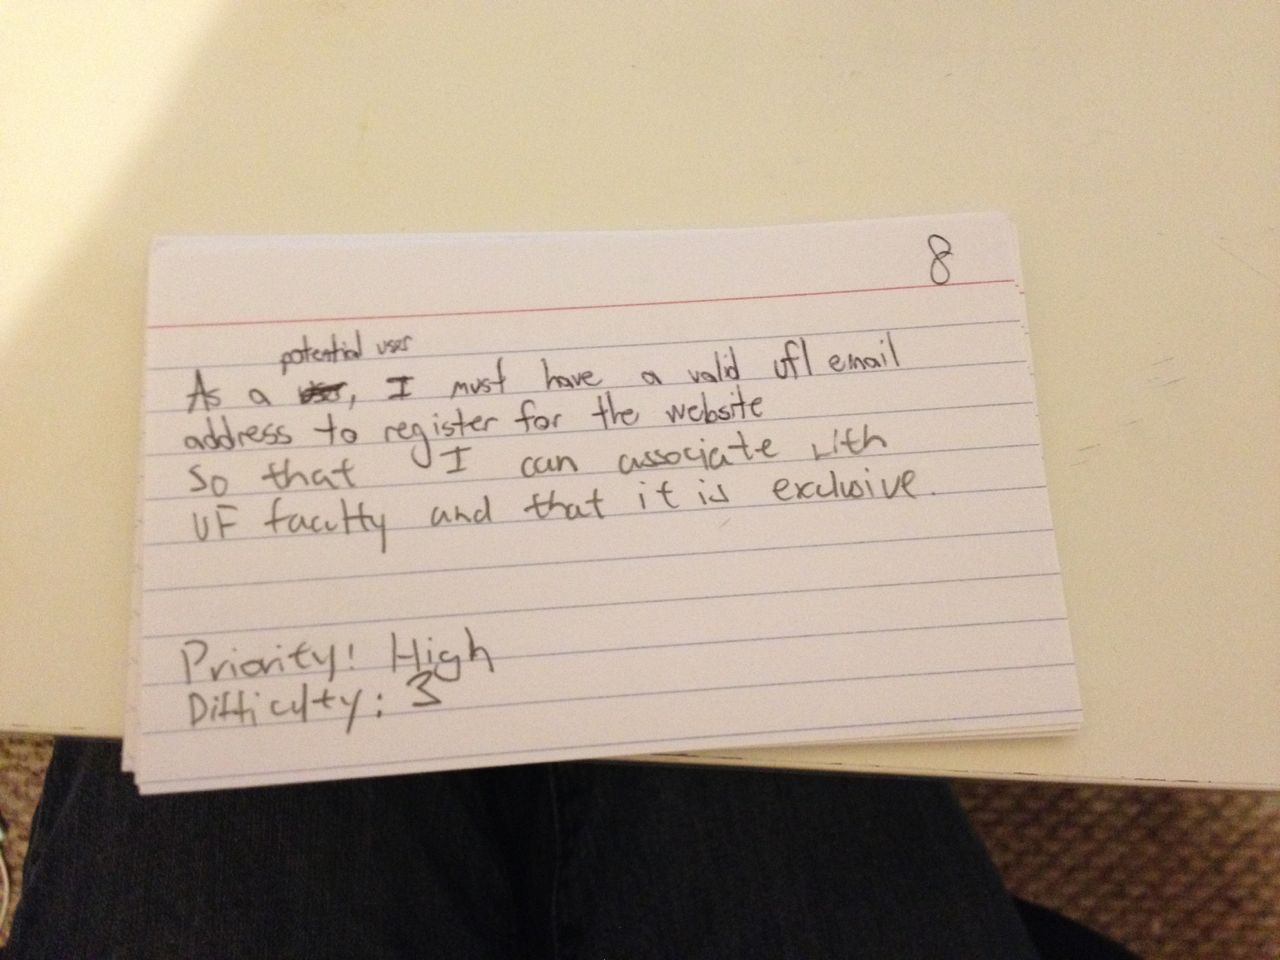 8
potential user
As a user, I must have a valid ufl email
address to register for the website
So that I can associate with
UF faculty and that it is exclusive.
Priority: High
Difficulty: 3